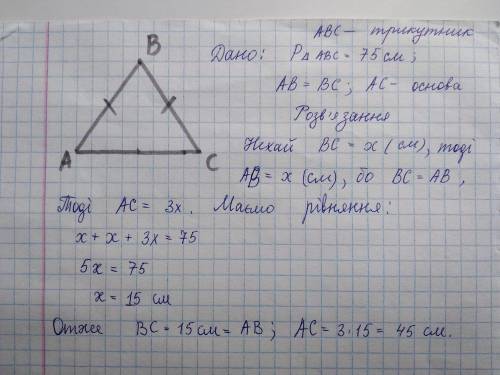 ABC — трикутник
Дано: P△ABC = 75 см;
AB = BC; AC - основа
Розв'язання
Нехай BC = x (см), тоді
AB = x (см), бо BC = AB,
Тоді AC = 3x. Маємо рівняння:
x + x + 3x = 75
5x = 75
x = 15 см
Отже BC = 15 см = AB; AC = 3·15 = 45 см.
B
A
C